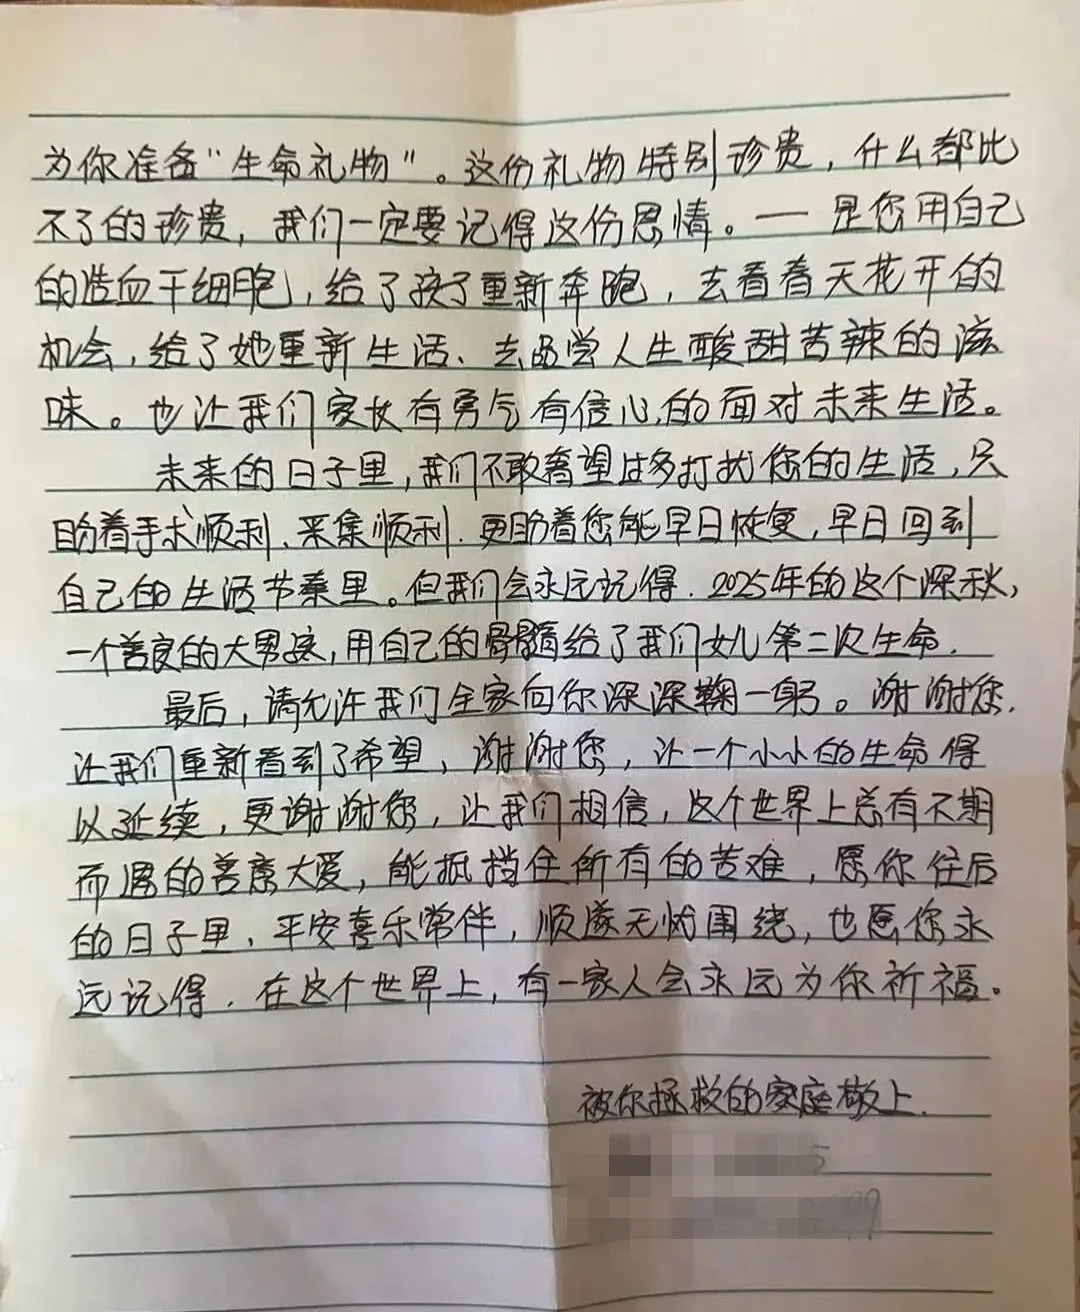 为你准备“生命礼物”。这份礼物特别珍贵，什么都比
不了的珍贵，我们一定要记得这份恩情。——是您用自己
的造血干细胞，给了孩子重新奔跑，去看春天花开的
机会，给了她重新生活、去品尝人生酸甜苦辣的滋
味。也让我们家长有勇气有信心的面对未来生活。
未来的日子里，我们不敢奢望过多打扰您的生活，只
盼着手术顺利、采集顺利．更盼着您能早日恢复，早日回到
自己的生活节奏里。但我们会永远记得．2025年的这个深秋，
一个善良的大男孩，用自己的骨髓给了我们女儿第二次生命．
最后，请允许我们全家向你深深鞠一躬。谢谢您．
让我们重新看到了希望，谢谢您，让一个小小的生命得
以延续，更谢谢您，让我们相信，这个世界上总有不期
而遇的善意大爱，能抵挡住所有的苦难，愿你往后
的日子里、平安喜乐常伴，顺遂无忧围绕，也愿您永
远记得．在这个世界上，有一家人会永远为你祈福。
被你拯救的家庭敬上．